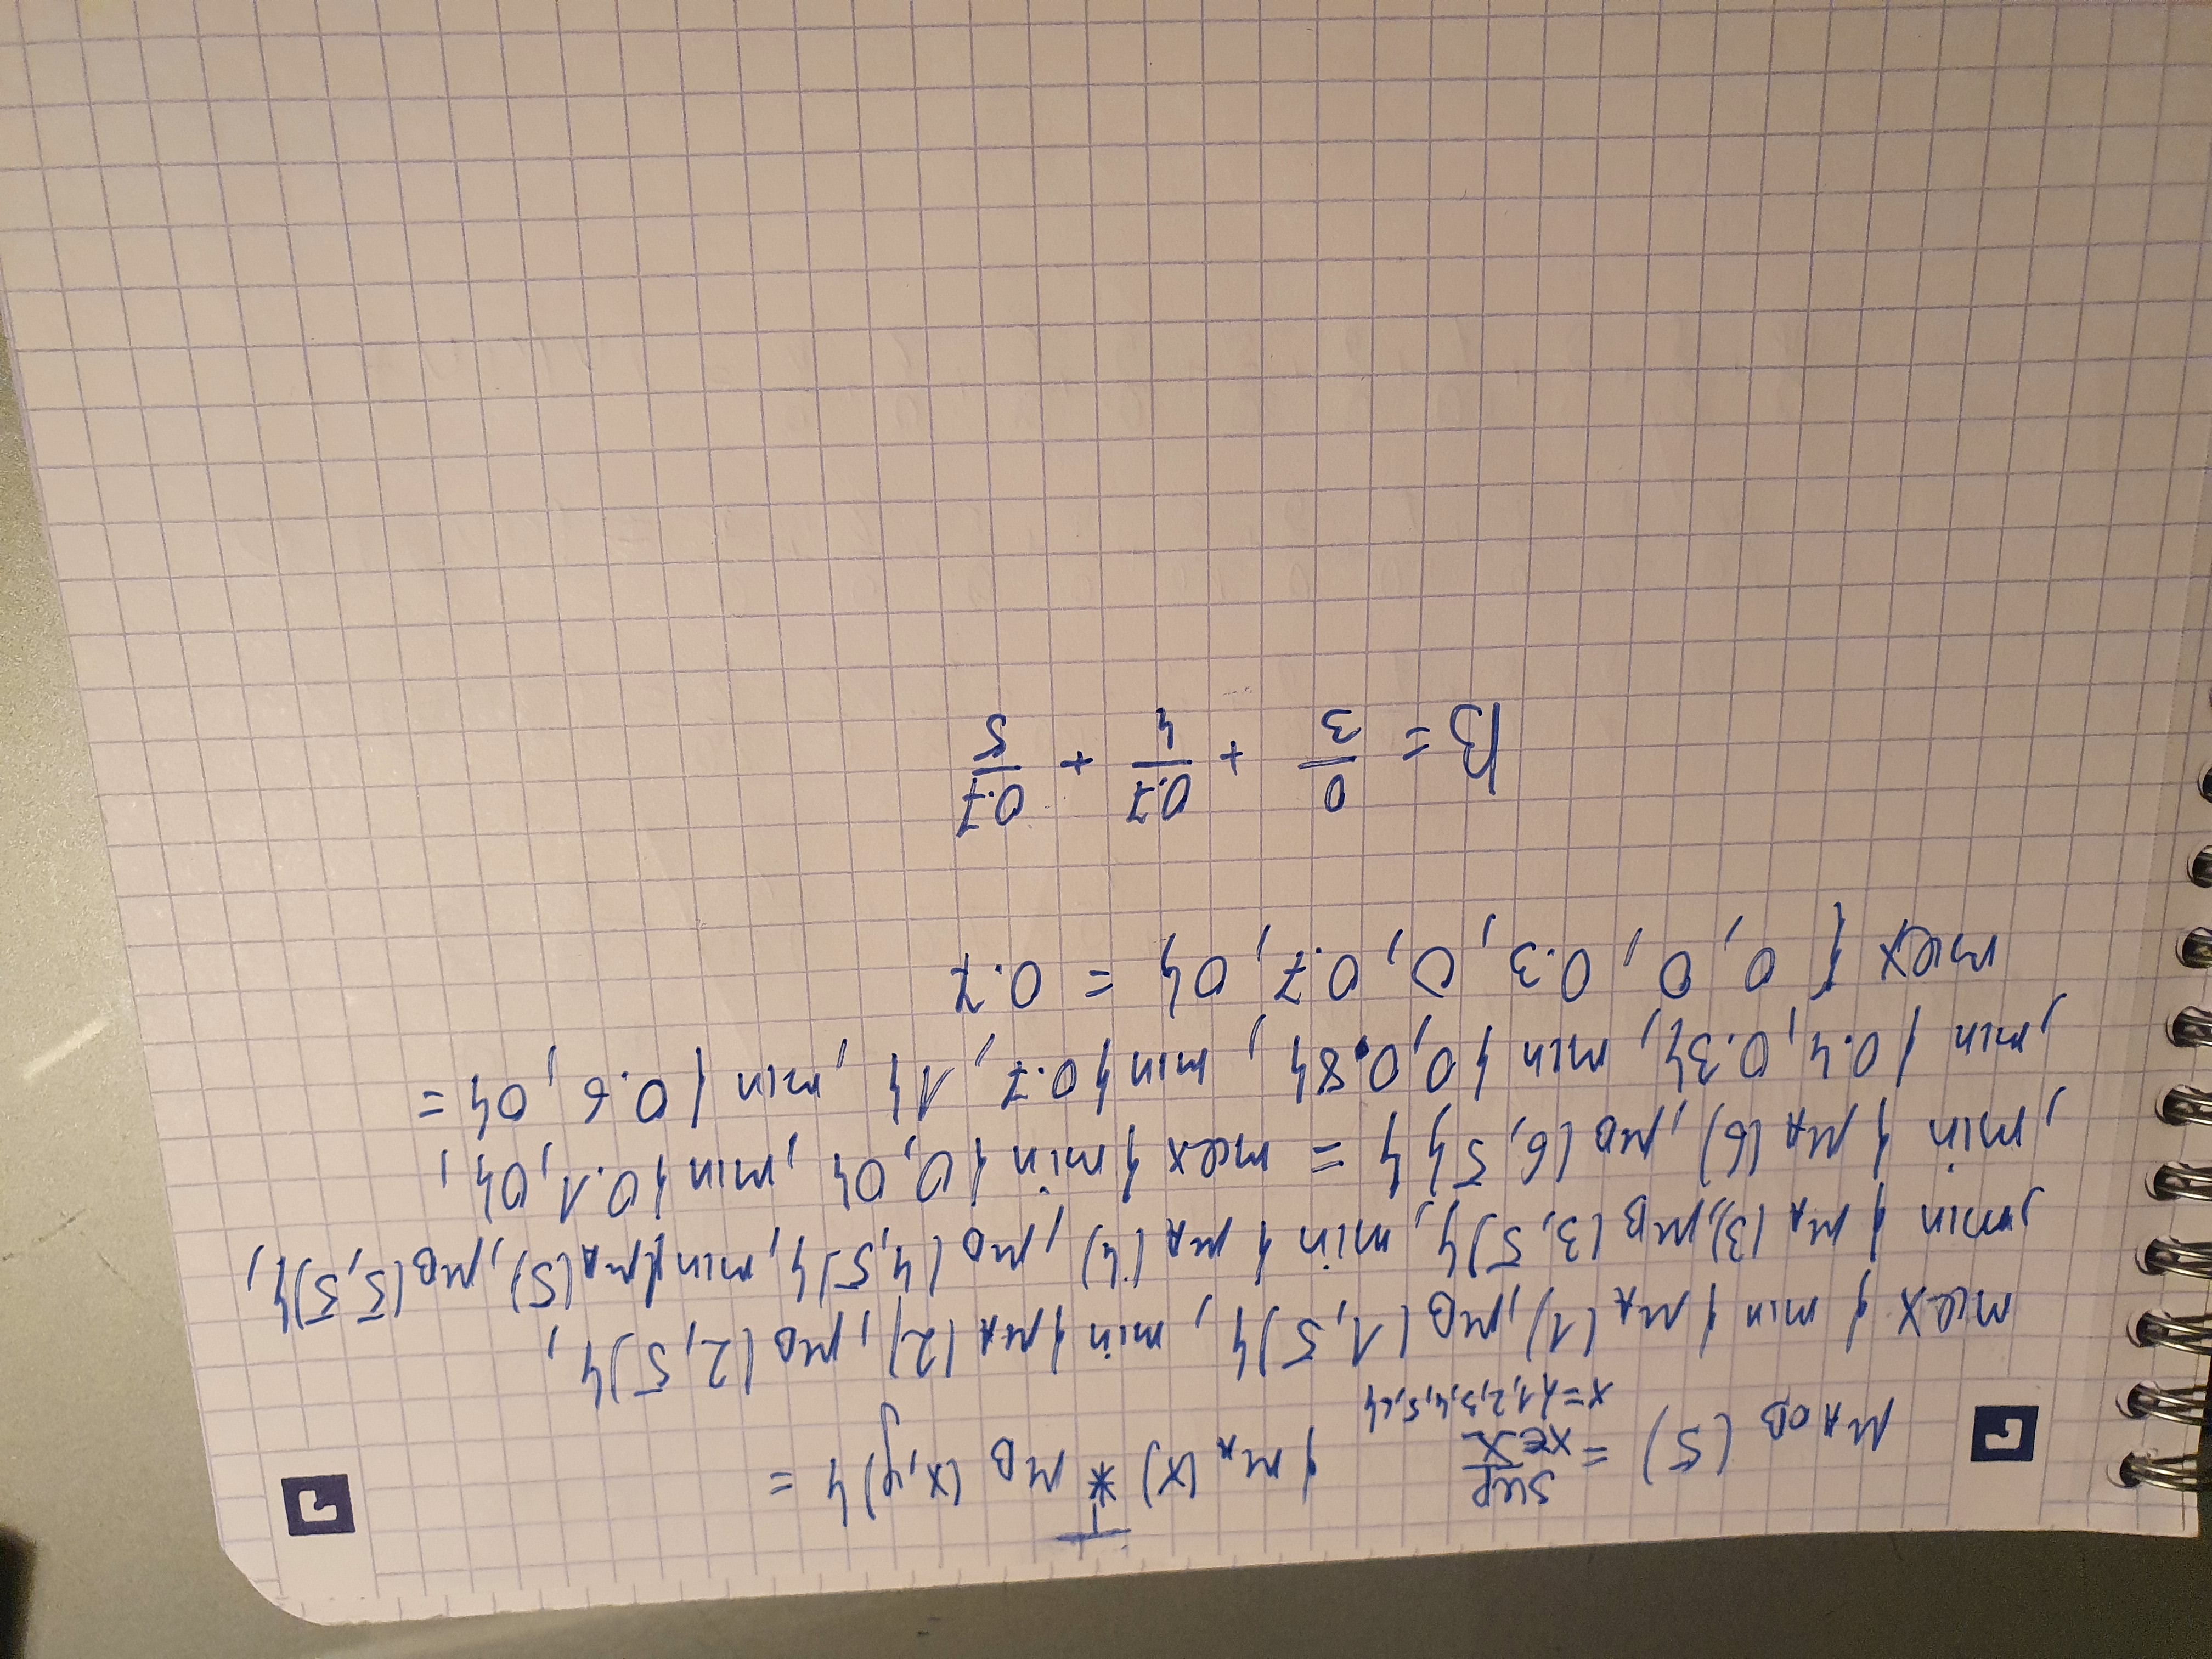 μ_A∘B (5) = sup x∈X {μ_A(x) T* μ_B(x,y)} =
x={1,2,3,4,5,6}
max { min {μ_A(1), μ_B(1,5)}, min {μ_A(2), μ_B(2,5)},
, min {μ_A(3), μ_B(3,5)}, min {μ_A(4), μ_B(4,5)}, min {μ_A(5), μ_B(5,5)},
, min {μ_A(6), μ_B(6,5}} = max {min {0,0}, min {0.1,0},
, min {0.4,0.3}, min {0,0.8}, min {0.7,1}, min {0.6,0} =
max { 0, 0, 0.3, 0, 0.7, 0} = 0.7
B = 0/3 + 0.7/4 + 0.7/5